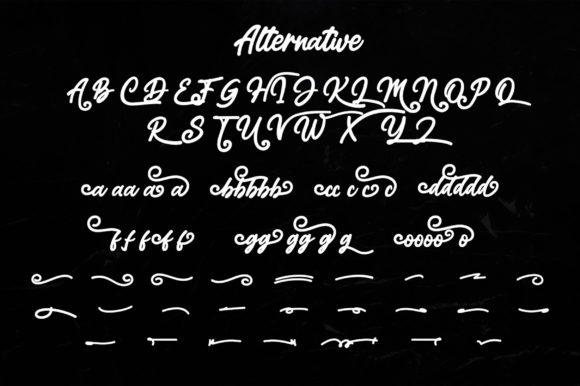 Alternative
A B C D E F G H I J K L M N O P Q
R S T U V W X Y Z
a aa a a bbbbb cc c c c ddddd
f f f f f gg gg g g ooooo o